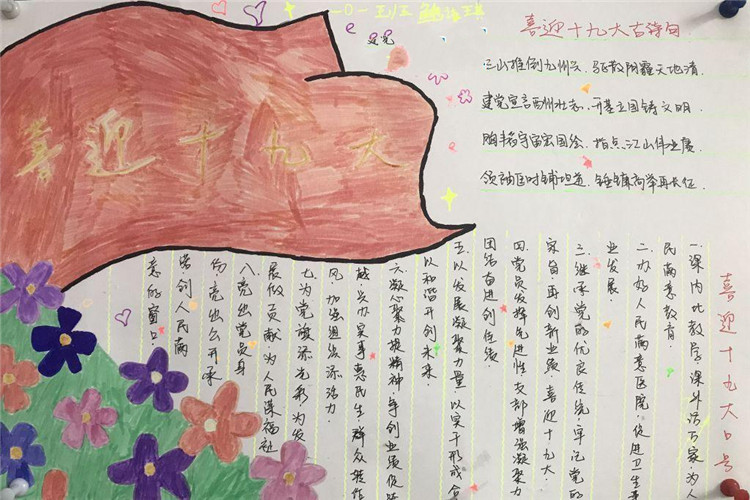 一〇一班
喜迎十九大
喜迎十九大古诗句
三山推倒九州云,驱散阴霾天地清,
建党宣言酉州壮志,开基立国铸文明,
胸丰韬宇宙宏图绘,指点江山伟业展,
领袖匡时铺坦道,锤镰高举再长征,
喜迎十九大口号
一.课内比教学.课外访万家.为人
民满意教育
二.办好人民满意医院.促进卫生
业发展
三.继承党的优良传统.牢记党的
宗旨.再创新业绩.喜迎十九大.
四.党员发挥先进性.支部增强凝聚力
团结奋进创佳绩.
五.以发展凝聚力量.以实干形成合
以和谐开创未来.
六.凝心聚力提精神.争创业绩促
越.兴办实事惠民生.群众
风.加强组织添活力.
七.为党旗添光彩.为发
展做贡献.为人民谋福祉
八.亮出党员身
份.亮出公开承
诺.创人民满
意的窗口.